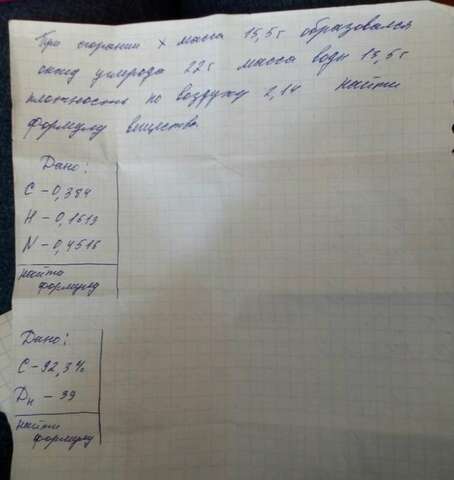 При сгорании х масса 15,5 г образовался
оксид углерода 22 г масса воды 13,5 г
плотность по воздуху 2,14 найти
формулу вещества.
Дано:
С - 0,384
Н - 0,1613
N - 0,4516
найти
формулу
Дано:
С - 92,3%
Dн - 39
найти
формулу